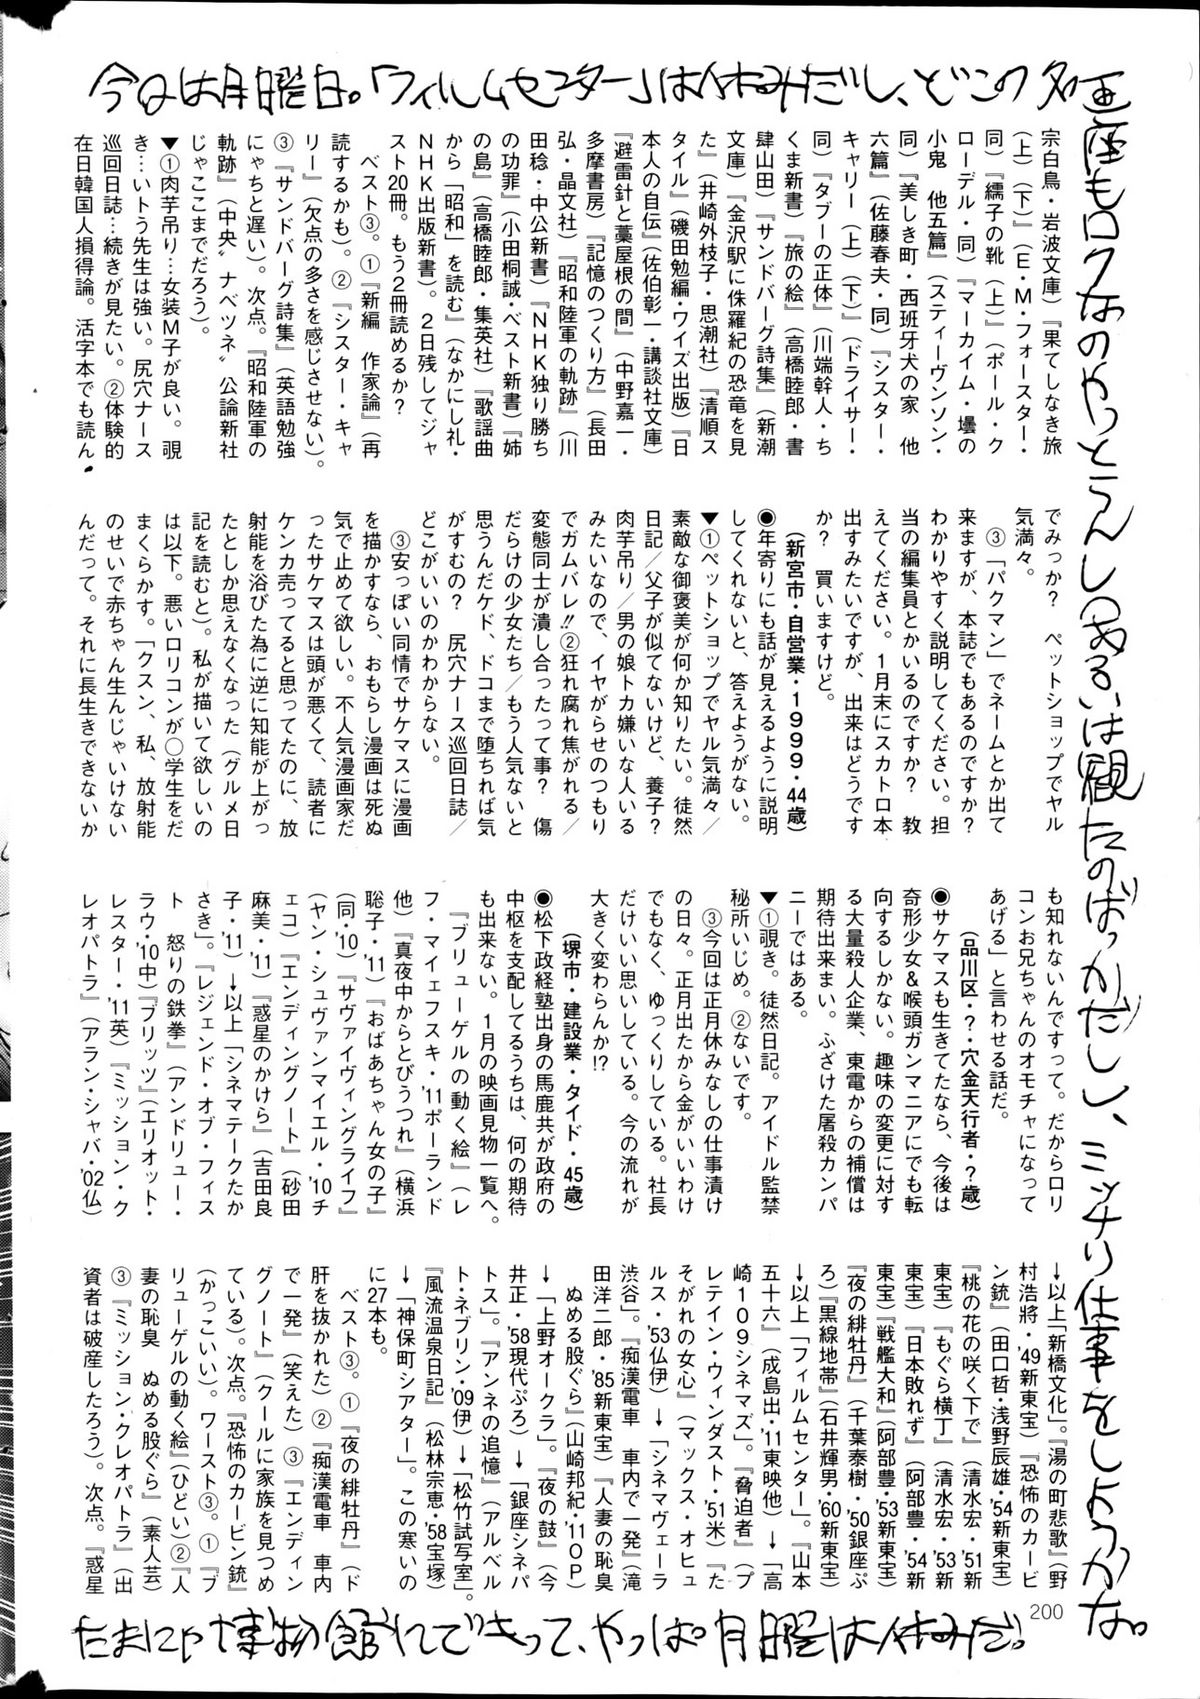 今日は月曜日。「フィルムセンター」は休みだし、どこの名
画座もロクなのやっとらんし(あるいは観たのばっかだし)、ミッチリ仕事をしようかな。
宗白鳥・岩波文庫)『果てしなき旅
(上)(下)』(E・M・フォースター・
同)『繻子の靴(上)』(ポール・ク
ローデル・同)『マーカイム・壜の
小鬼 他五篇』(スティーヴンソン・
同)『美しき町・西班牙犬の家 他
六篇』(佐藤春夫・同)『シスター・
キャリー(上)(下)』(ドライサー・
同)『タブーの正体』(川端幹人・ち
くま新書)『旅の絵』(高橋睦郎・書
肆山田)『サンドバーグ詩集』(新潮
文庫)『金沢駅に侏羅紀の恐竜を見
た』(井崎外枝子・思潮社)『清順ス
タイル』(磯田勉編・ワイズ出版)『日
本人の自伝』(佐伯彰一・講談社文庫)
『避雷針と藁屋根の間』(中野嘉一・
多摩書房)『記憶のつくり方』(長田
弘・晶文社)『昭和陸軍の軌跡』(川
田稔・中公新書)『NHK独り勝ち
の功罪』(小田桐誠・ベスト新書)『姉
の島』(高橋睦郎・集英社)『歌謡曲
から「昭和」を読む』(なかにし礼・
NHK出版新書)。2日残してジャ
スト20冊。もう2冊読めるか?
ベスト③。①『新編 作家論』(再
読するかも)。②『シスター・キャ
リー』(欠点の多さを感じさせない)。
③『サンドバーグ詩集』(英語勉強
にゃちと遅い)。次点。『昭和陸軍の
軌跡』(中央〝ナベツネ〟公論新社
じゃここまでだろう)。
▼①肉芋吊り…女装M子が良い。覗
き…いトう先生は強い。尻穴ナース
巡回日誌…続きが見たい。②体験的
在日韓国人損得論。活字本でも読ん
でみっか? ペットショップでヤル
気満々。
③「パクマン」でネームとか出て
来ますが、本誌でもあるのですか?
わかりやすく説明してください。担
当の編集員とかいるのですか? 教
えてください。1月末にスカトロ本
出すみたいですが、出来はどうです
か? 買いますけど。
(新宮市・自営業・1999・44歳)
◉年寄りにも話が見えるように説明
してくれないと、答えようがない。
▼①ペットショップでヤル気満々/
素敵な御褒美が何か知りたい。徒然
日記/父子が似てないけど、養子?
肉芋吊り/男の娘トカ嫌いな人いる
みたいなので、イヤがらせのつもり
でガムバレ!!②狂れ腐れ焦がれる/
変態同士が潰し合ったって事? 傷
だらけの少女たち/もう人気ないと
思うんだケド、ドコまで堕ちれば気
がすむの? 尻穴ナース巡回日誌/
どこがいいのかわからない。
③安っぽい同情でサケマスに漫画
を描かすなら、おもらし漫画は死ぬ
気で止めて欲しい。不人気漫画家だ
ったサケマスは頭が悪くて、読者に
ケンカ売ってると思ってたのに、放
射能を浴びた為に逆に知能が上がっ
たとしか思えなくなった(グルメ日
記を読むと)。
(品川区・?・穴金天行者・?歳)
◉サケマスも生きてたなら、今後は
奇形少女&喉頭ガンマニアにでも転
向するしかない。趣味の変更に対す
る大量殺人企業、東電からの補償は
期待出来まい。ふざけた屠殺カンパ
ニーではある。
▼①覗き。徒然日記。アイドル監禁
秘所いじめ。②ないです。
③今回は正月休みなしの仕事漬け
の日々。正月出たから金がいいわけ
でもなく、ゆっくりしている。社長
だけいい思いしている。今の流れが
大きく変わらんか!?
(堺市・建設業・タイド・45歳)
◉松下政経塾出身の馬鹿共が政府の
中枢を支配してるうちは、何の期待
も出来ない。1月の映画見物一覧へ。
『ブリューゲルの動く絵』(レ
フ・マイェフスキ・'11ポーランド
他)『真夜中からとびうつれ』(横浜
聡子・'11)『おばあちゃん女の子』
(同・'10)『サヴァイヴィングライフ』
(ヤン・シュヴァンマイエル・'10チ
ェコ)『エンディングノート』(砂田
麻美・'11)『惑星のかけら』(吉田良
子・'11)→以上「シネマテークたか
さき」。『レジェンド・オブ・フィス
ト 怒りの鉄拳』(アンドリュー・
ラウ・'10中)『ブリッツ』(エリオット・
レスター・'11英)『ミッション・ク
レオパトラ』(アラン・シャバ・'02仏)
→以上「新橋文化」。『湯の町悲歌』(野
村浩將・'49新東宝)『恐怖のカービ
ン銃』(田口哲・浅野辰雄・'54新東宝)
『桃の花の咲く下で』(清水宏・'51新
東宝)『もぐら横丁』(清水宏・'53新
東宝)『日本敗れず』(阿部豊・'54新
東宝)『戦艦大和』(阿部豊・'53新東宝)
『夜の緋牡丹』(千葉泰樹・'50銀座ぷ
ろ)『黒線地帯』(石井輝男・'60新東宝)
→以上「フィルムセンター」。『山本
五十六』(成島出・'11東映他)→「高
崎109シネマズ」。『脅迫者』(ブ
レテイン・ウィンダスト・'51米)『た
そがれの女心』(マックス・オヒュ
ルス・'53仏伊)→「シネマヴェーラ
渋谷」。『痴漢電車 車内で一発』(滝
田洋二郎・'85新東宝)『人妻の恥臭
ぬめる股ぐら』(山崎邦紀・'11OP)
→「上野オークラ」。『夜の鼓』(今
井正・'58現代ぷろ)→「銀座シネパ
トス」。『アンネの追憶』(アルベル
ト・ネグリン・'09伊)→「松竹試写室」。
『風流温泉日記』(松林宗恵・'58宝塚)
→「神保町シアター」。この寒いの
に27本も。
ベスト③。①『夜の緋牡丹』(ド
肝を抜かれた)②『痴漢電車 車内
で一発』(笑えた)③『エンディン
グノート』(クールに家族を見つめ
ている)。次点。『恐怖のカービン銃』
(かっこいい)。ワースト③。①『ブ
リューゲルの動く絵』(ひどい)②『人
妻の恥臭 ぬめる股ぐら』(素人芸)
③『ミッション・クレオパトラ』(出
資者は破産したろう)。次点。『惑星
200
たまにゃ博物館れでもって、やっぱ月曜は休みだ。